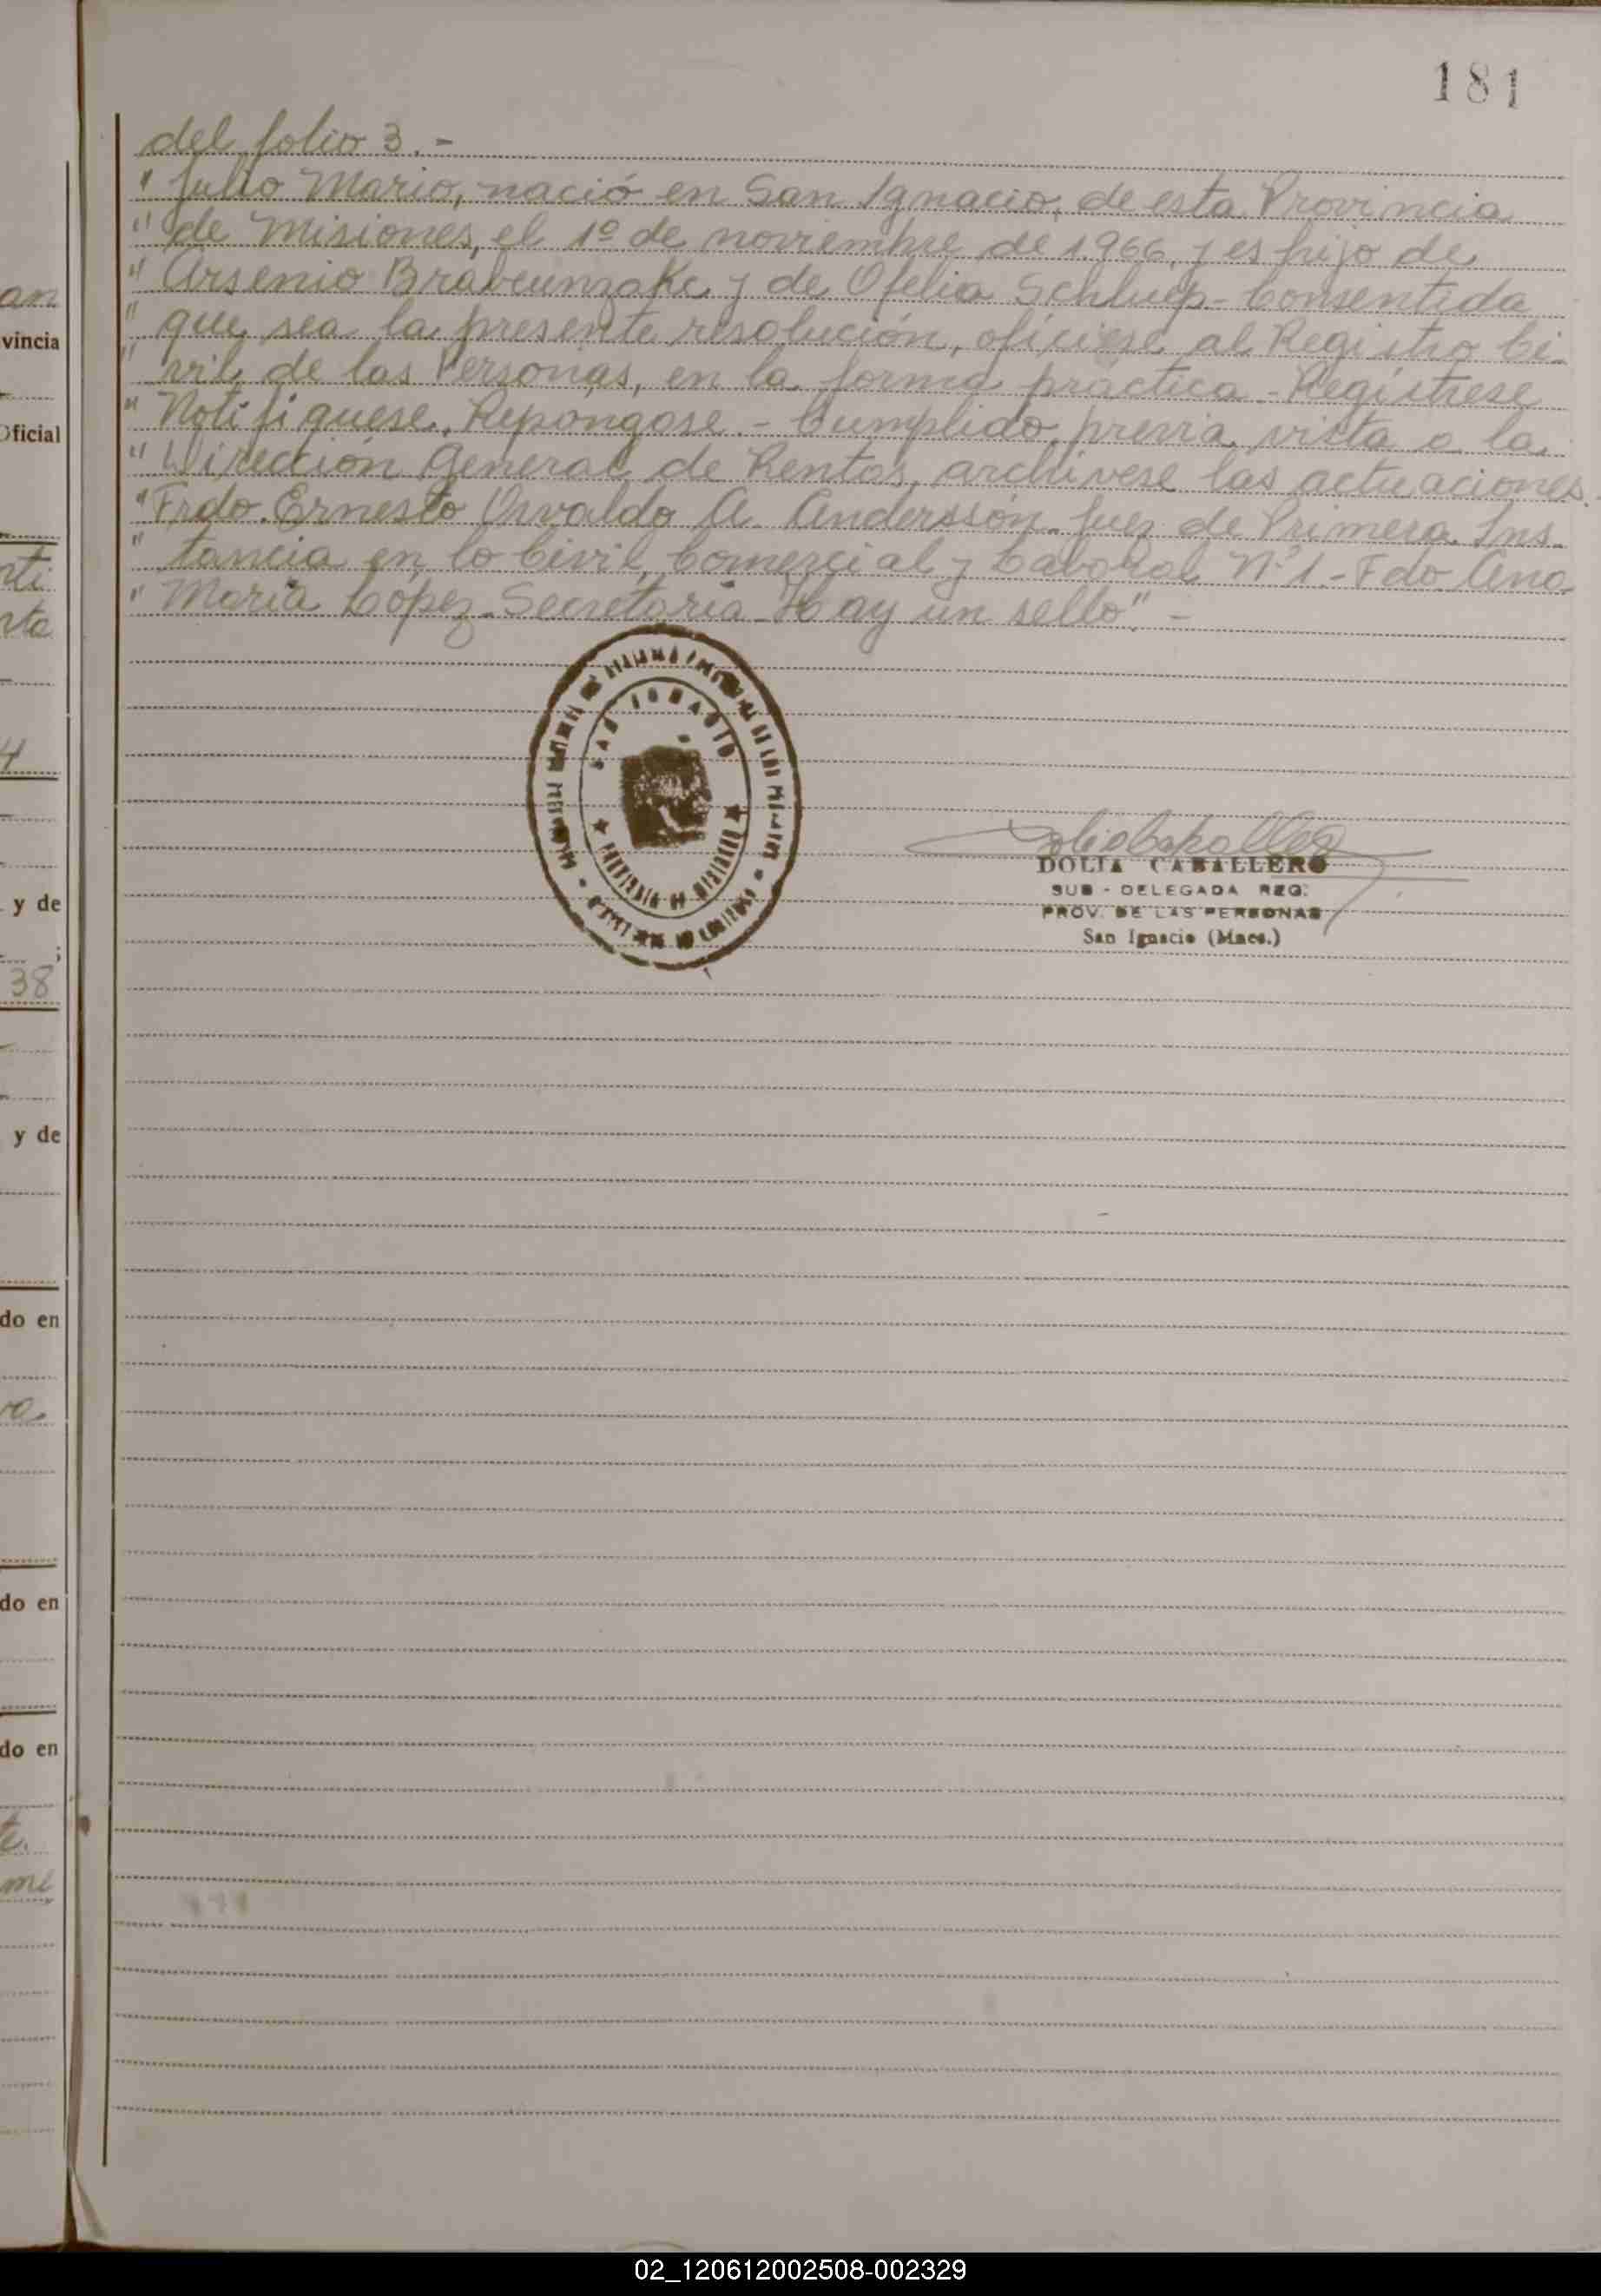 181
del folio 3.-
" Julio Mario, nació en San Ignacio, de esta Provincia
" de Misiones, el 1º de noviembre de 1.966, y es hijo de
" Arsenio y de Ofelia - Consentida
" que sea la presente resolución, ofíciese al Registro Ci-
" vil de las Personas, en la forma práctica - Regístrese
" Notifíquese. Repóngase.- Cumplido, previa vista a la
" Dirección General de Rentas, archívese las actuaciones.
" Frdo. Ernesto Osvaldo A. Andersson. Juez de Primera Ins-
" tancia en lo Civil, Comercial y Laboral Nº 1 - Fdo Ana
" María López - Secretaria - Hay un sello". -
SAN IGNACIO
PROVINCIA DE MISIONES
DOLIA CABALLERO
SUB - DELEGADA REG.
PROV. DE LAS PERSONAS
San Ignacio (Mnes.)
an
vincia
Oficial
nti
nta
4
y de
;
38
y de
do en
ra
do en
do en
te.
mi
02_120612002508-002329